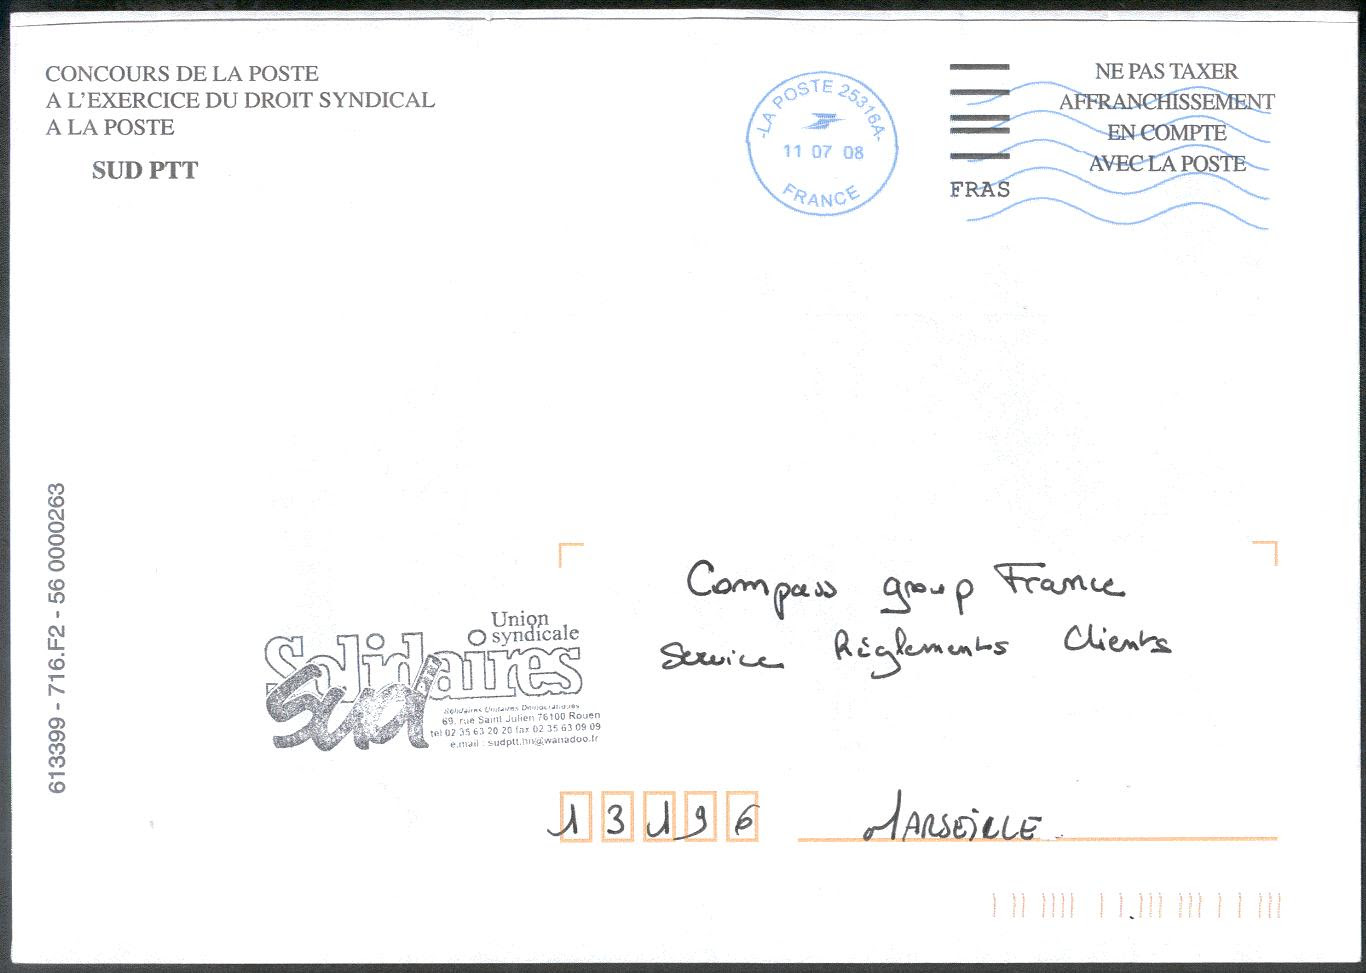 CONCOURS DE LA POSTE
A L'EXERCICE DU DROIT SYNDICAL
A LA POSTE
SUD PTT
-LA POSTE 25316A-
11 07 08
FRANCE
FRAS
NE PAS TAXER
AFFRANCHISSEMENT
EN COMPTE
AVEC LA POSTE
613399 - 716.F2 - 56 0000263
Compass group France
Service Règlements Clients
Union
syndicale
Solidaires
Sud
Solidaires Unitaires Démocratiques
69, rue Saint Julien 76100 Rouen
tel 02 35 63 20 20 fax 02 35 63 09 09
e.mail : sudptt.hn@wanadoo.fr
13196 MARSEILLE